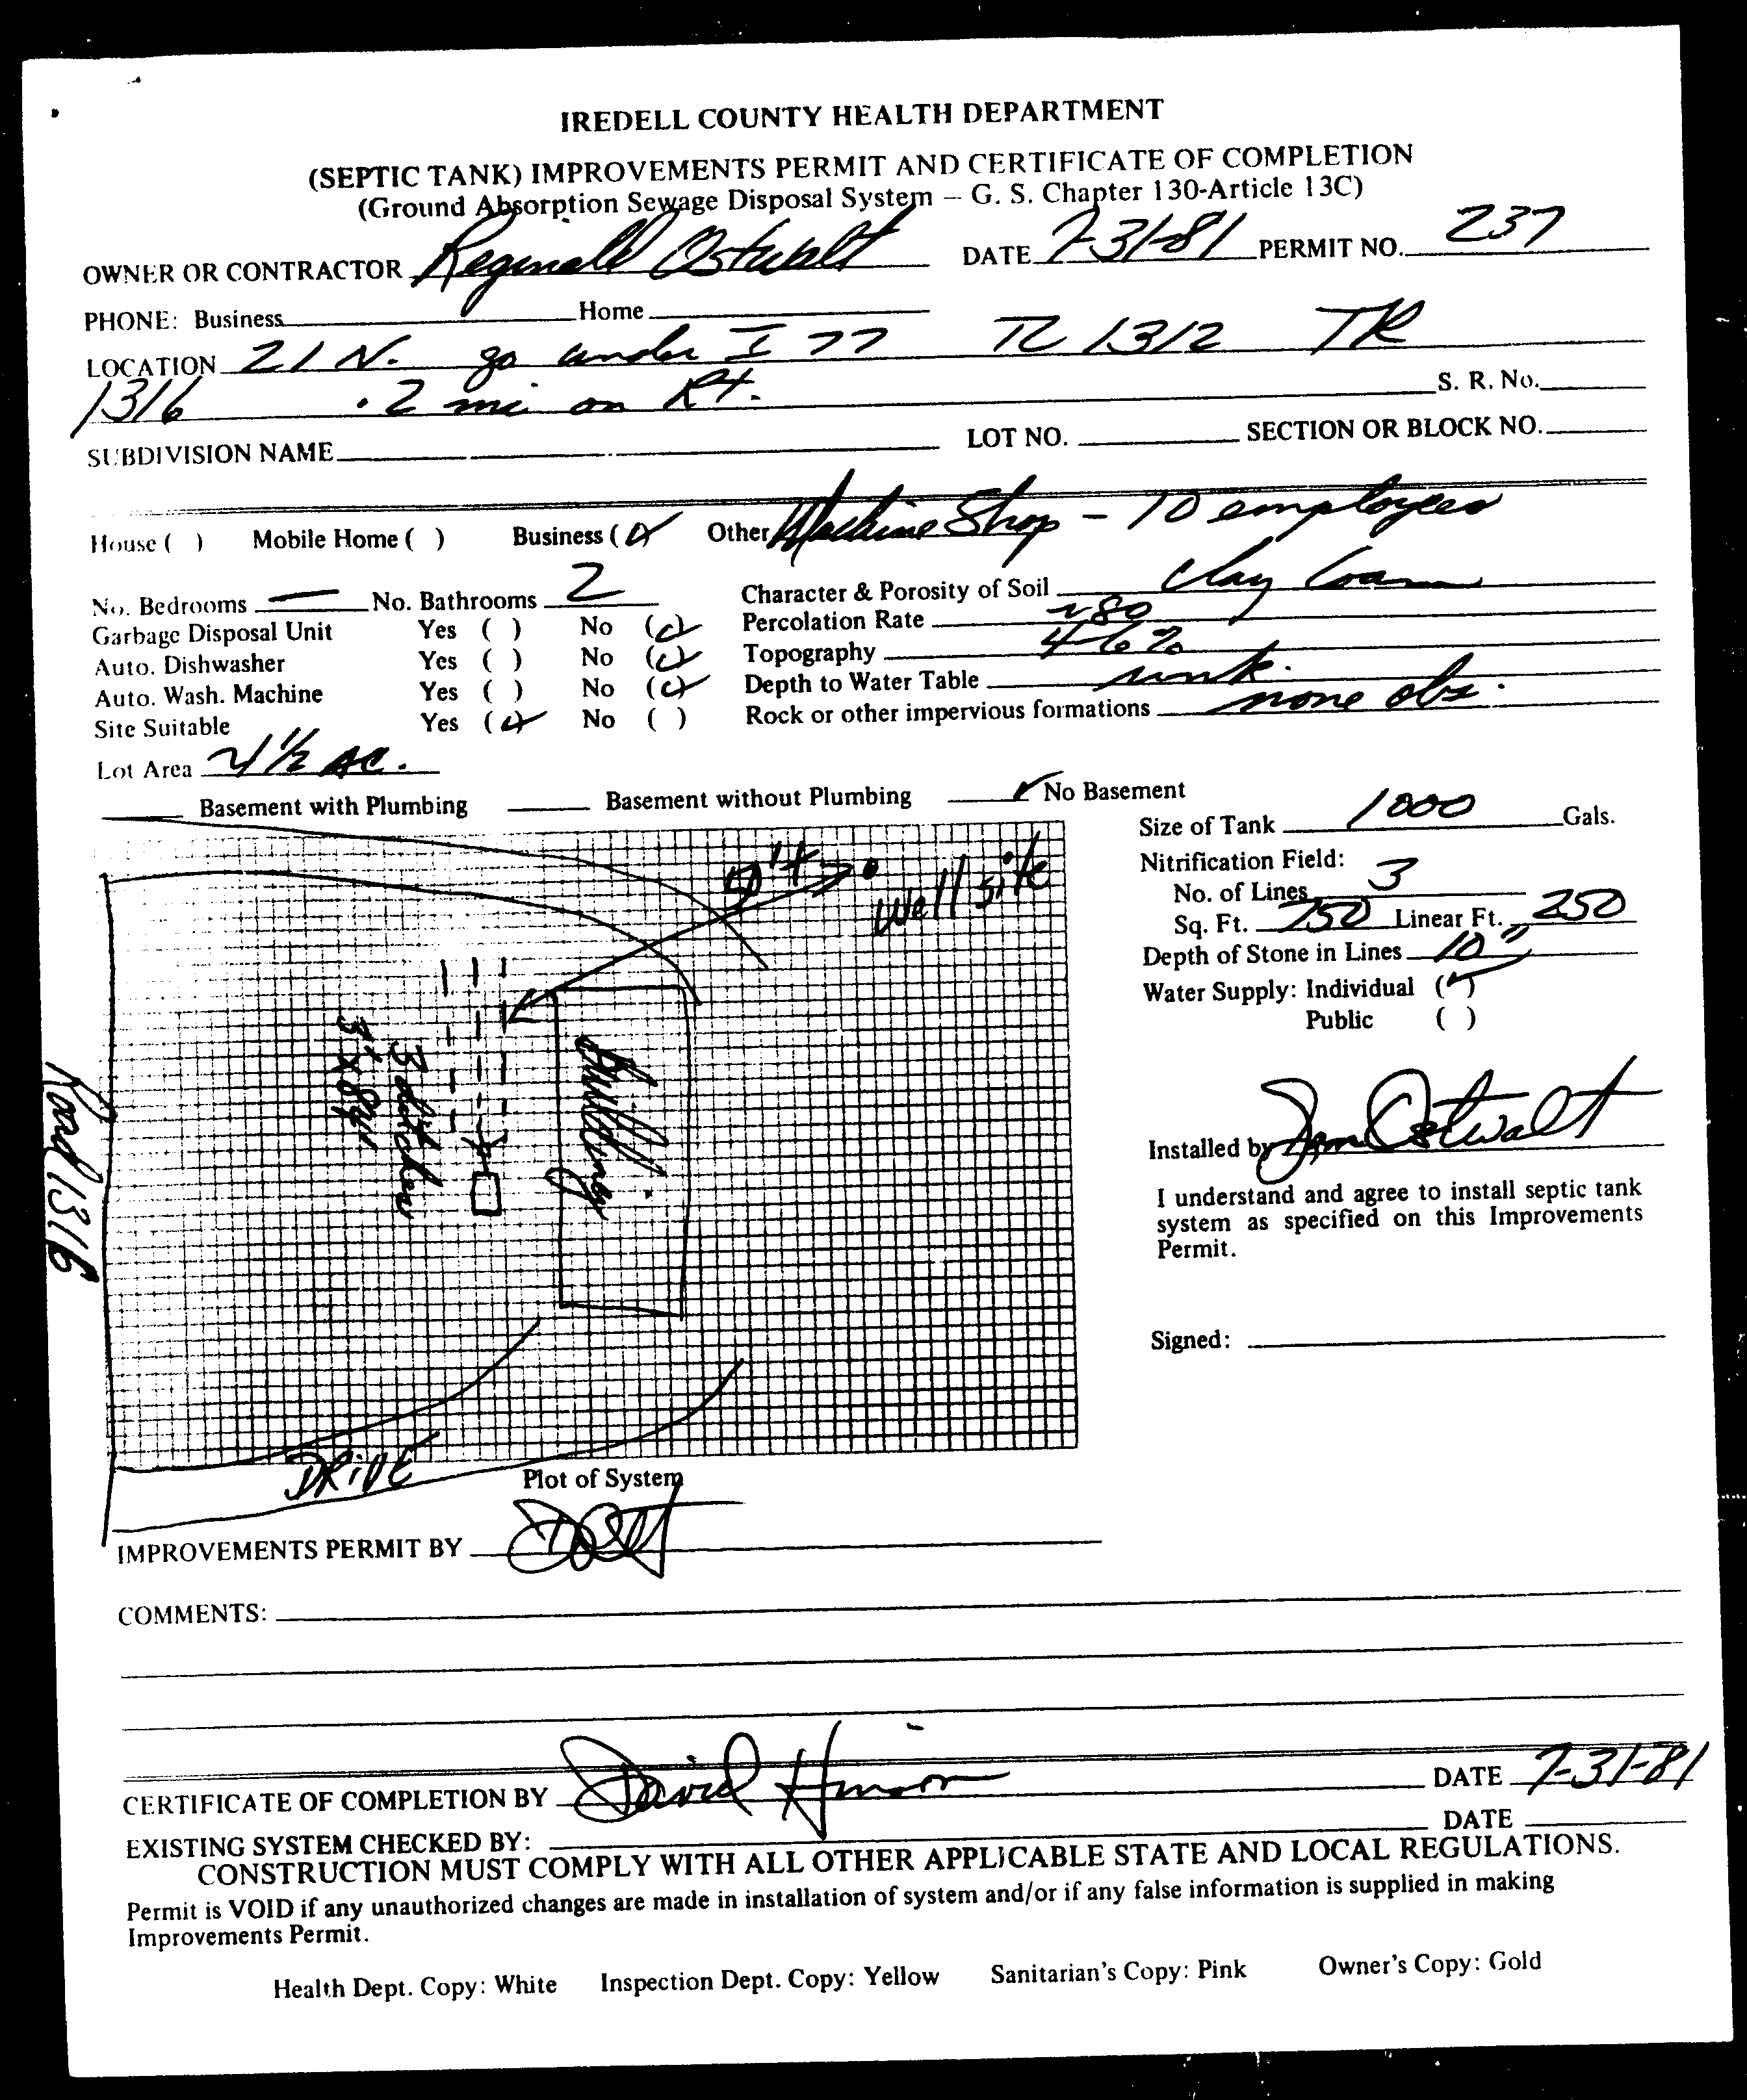 IREDELL COUNTY HEALTH DEPARTMENT
(SEPTIC TANK) IMPROVEMENTS PERMIT AND CERTIFICATE OF COMPLETION
(Ground Absorption Sewage Disposal System – G. S. Chapter 130-Article 13C)
OWNER OR CONTRACTOR Reginald Ostwalt DATE 7-31-81 PERMIT NO. 237
PHONE: Business Home
LOCATION 21 N. go under I 77 TL 1312 TR
1316 .2 mi on Rt. S. R. No.
SUBDIVISION NAME LOT NO. SECTION OR BLOCK NO.
House ( ) Mobile Home ( ) Business (✓) Other Machine Shop - 10 employees
No. Bedrooms — No. Bathrooms 2 Character & Porosity of Soil Clay Loam
Garbage Disposal Unit Yes ( ) No (✓) Percolation Rate ~80
Auto. Dishwasher Yes ( ) No (✓) Topography 4-6%
Auto. Wash. Machine Yes ( ) No (✓) Depth to Water Table unk.
Site Suitable Yes (✓) No ( ) Rock or other impervious formations none obs.
Lot Area ~1½ AC.
Basement with Plumbing Basement without Plumbing ✓ No Basement
Size of Tank 1000 Gals.
Nitrification Field:
No. of Lines 3
Sq. Ft. 750 Linear Ft. 250
Depth of Stone in Lines 10"
Water Supply: Individual (✓)
Public ( )
Well site
Building
3 ditches
3' X 84'
Road 1316
DRIVE
Installed by Ostwalt
I understand and agree to install septic tank
system as specified on this Improvements
Permit.
Signed:
Plot of System
IMPROVEMENTS PERMIT BY
COMMENTS:
CERTIFICATE OF COMPLETION BY David DATE 7-31-81
EXISTING SYSTEM CHECKED BY: DATE
CONSTRUCTION MUST COMPLY WITH ALL OTHER APPLICABLE STATE AND LOCAL REGULATIONS.
Permit is VOID if any unauthorized changes are made in installation of system and/or if any false information is supplied in making
Improvements Permit.
Health Dept. Copy: White Inspection Dept. Copy: Yellow Sanitarian's Copy: Pink Owner's Copy: Gold